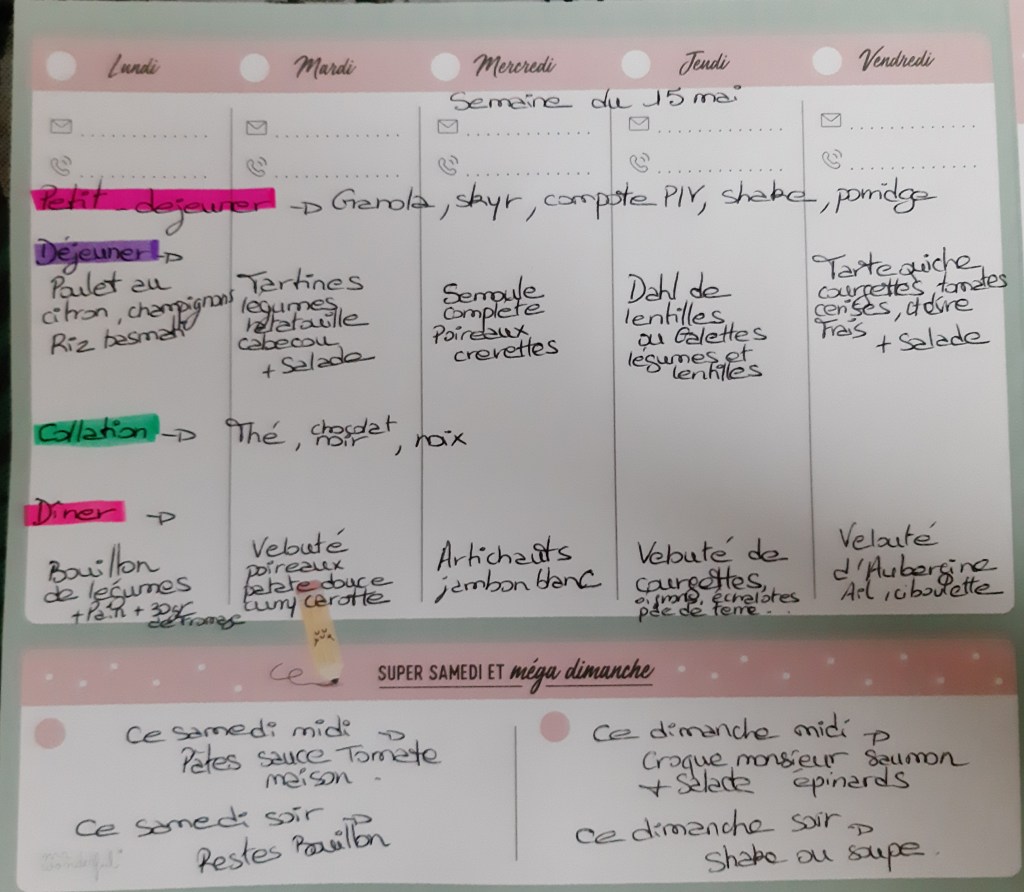 Lundi
Mardi
Mercredi
Jeudi
Vendredi
Semaine du 15 mai
Petit-dejeuner → Granola, skyr, compote P/V, shake, porridge
Déjeuner →
Poulet au
citron, champignons
Riz basmati
Tartines
légumes
ratatouille
cabecou
+ Salade
Semoule
complete
Poireaux
crevettes
Dahl de
lentilles
ou Galettes
légumes et
lentilles
Tarte quiche
courgettes, tomates
cerises, chèvre
frais + Salade
Collation → Thé, chocolat noir, noix
Dîner →
Bouillon
de légumes
+ Pain + 30gr
de fromage
Velouté
poireaux
patate douce
curry carotte
Artichauts
jambon blanc
Velouté de
courgettes,
oignons, échalotes
pde de terre..
Velouté
d'Aubergine
Ail, ciboulette
Ce
SUPER SAMEDI ET méga dimanche
Ce samedi midi →
Pâtes sauce Tomate
maison.
Ce samedi soir →
Restes Bouillon
Ce dimanche midi →
Croque monsieur saumon
+ Salade épinards
Ce dimanche soir →
Shake ou soupe.